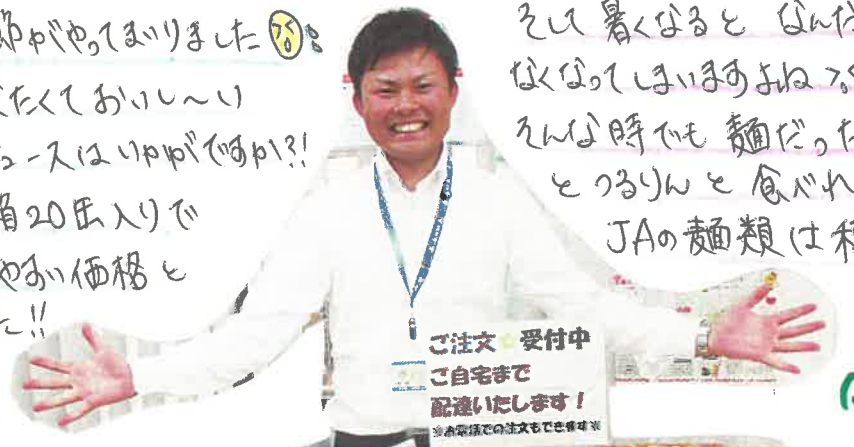 節がやってまいりました
たくておいし〜い
ュースはいかがですか?!
箱20缶入りで
やすい価格と
た!!
そして暑くなると なんだ
なくなってしまいますよね
そんな時でも 麺だった
とつるりんと 食べれ
JAの麺類は種
ご注文 受付中
ご自宅まで
配達いたします！
※お電話での注文もできます※